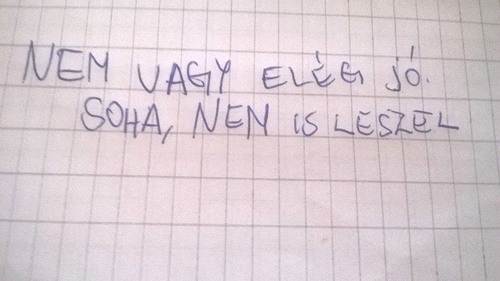 NEM VAGY ELÉG JÓ.
SOHA, NEM IS LESZEL